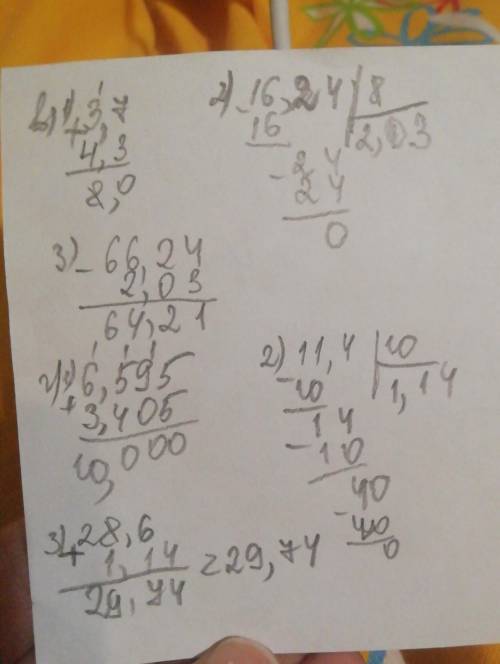 в) 1) 3,7
+
4,3
8,0
2) 16,24 | 8
- 16
2,03
- 24
24
0
3) - 66,24
2,03
64,21
г) 1) 6,595
+ 3,405
10,000
2) 11,4 | 10
- 10
1,14
14
- 10
40
- 40
0
3) 28,6
+ 1,14 = 29,74
29,74